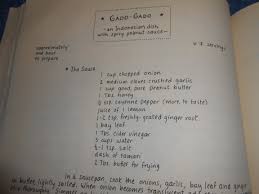 GADO-GADO
-an Indonesian dish
with spicy peanut sauce-
approximately
one hour
to prepare
The Sauce
1 cup chopped onion
2 medium cloves crushed garlic
1 cup good, pure peanut butter
1 Tbs. honey
1/4 tsp. cayenne pepper (more, to taste)
juice of 1 lemon
1-2 tsp. freshly grated ginger root
1 bay leaf
1 Tbs cider vinegar
3 cups water
1/2-1 tsp. salt
dash of tamari
2 Tbs. butter for frying
In a saucepan, cook the onions, garlic, bay leaf and ginger
in butter, lightly salted. When onion becomes translucent add